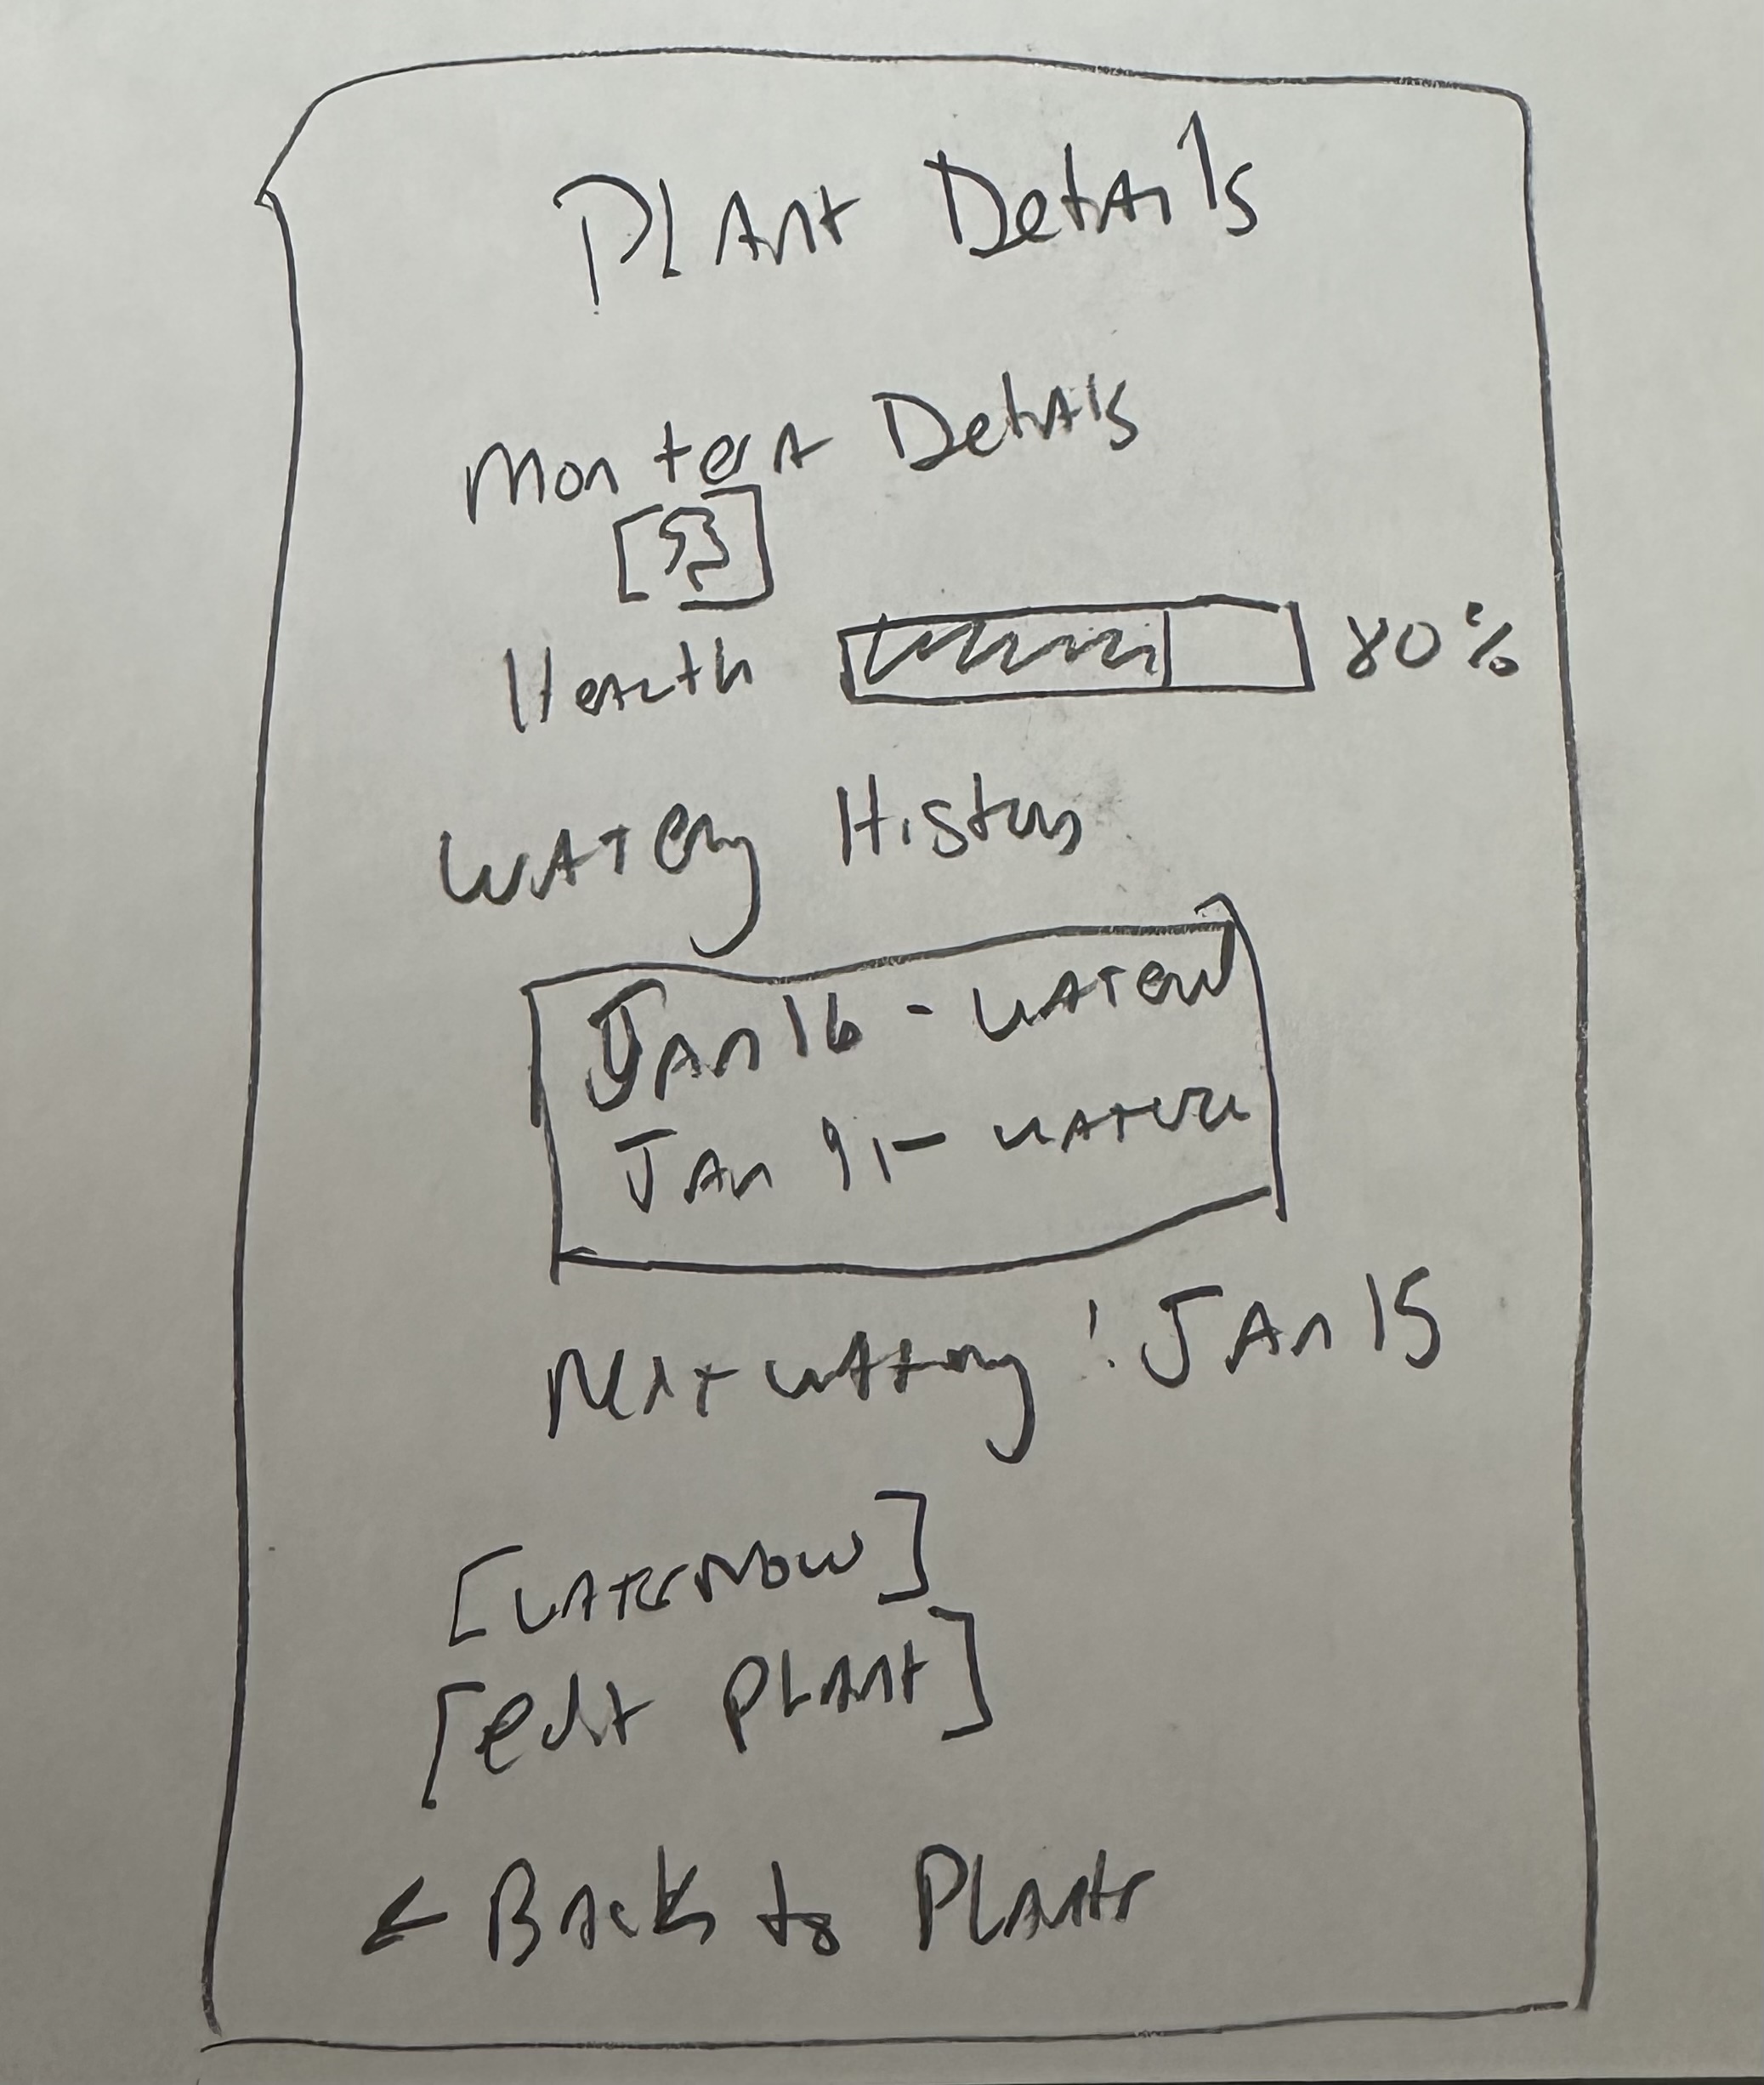 Plant Details
Montera Details
Health 80%
Watering History
Jan 16 - watered
Jan 9 - water
Next watering: Jan 15
[Water Now]
[Edit Plant]
← Back to Plants